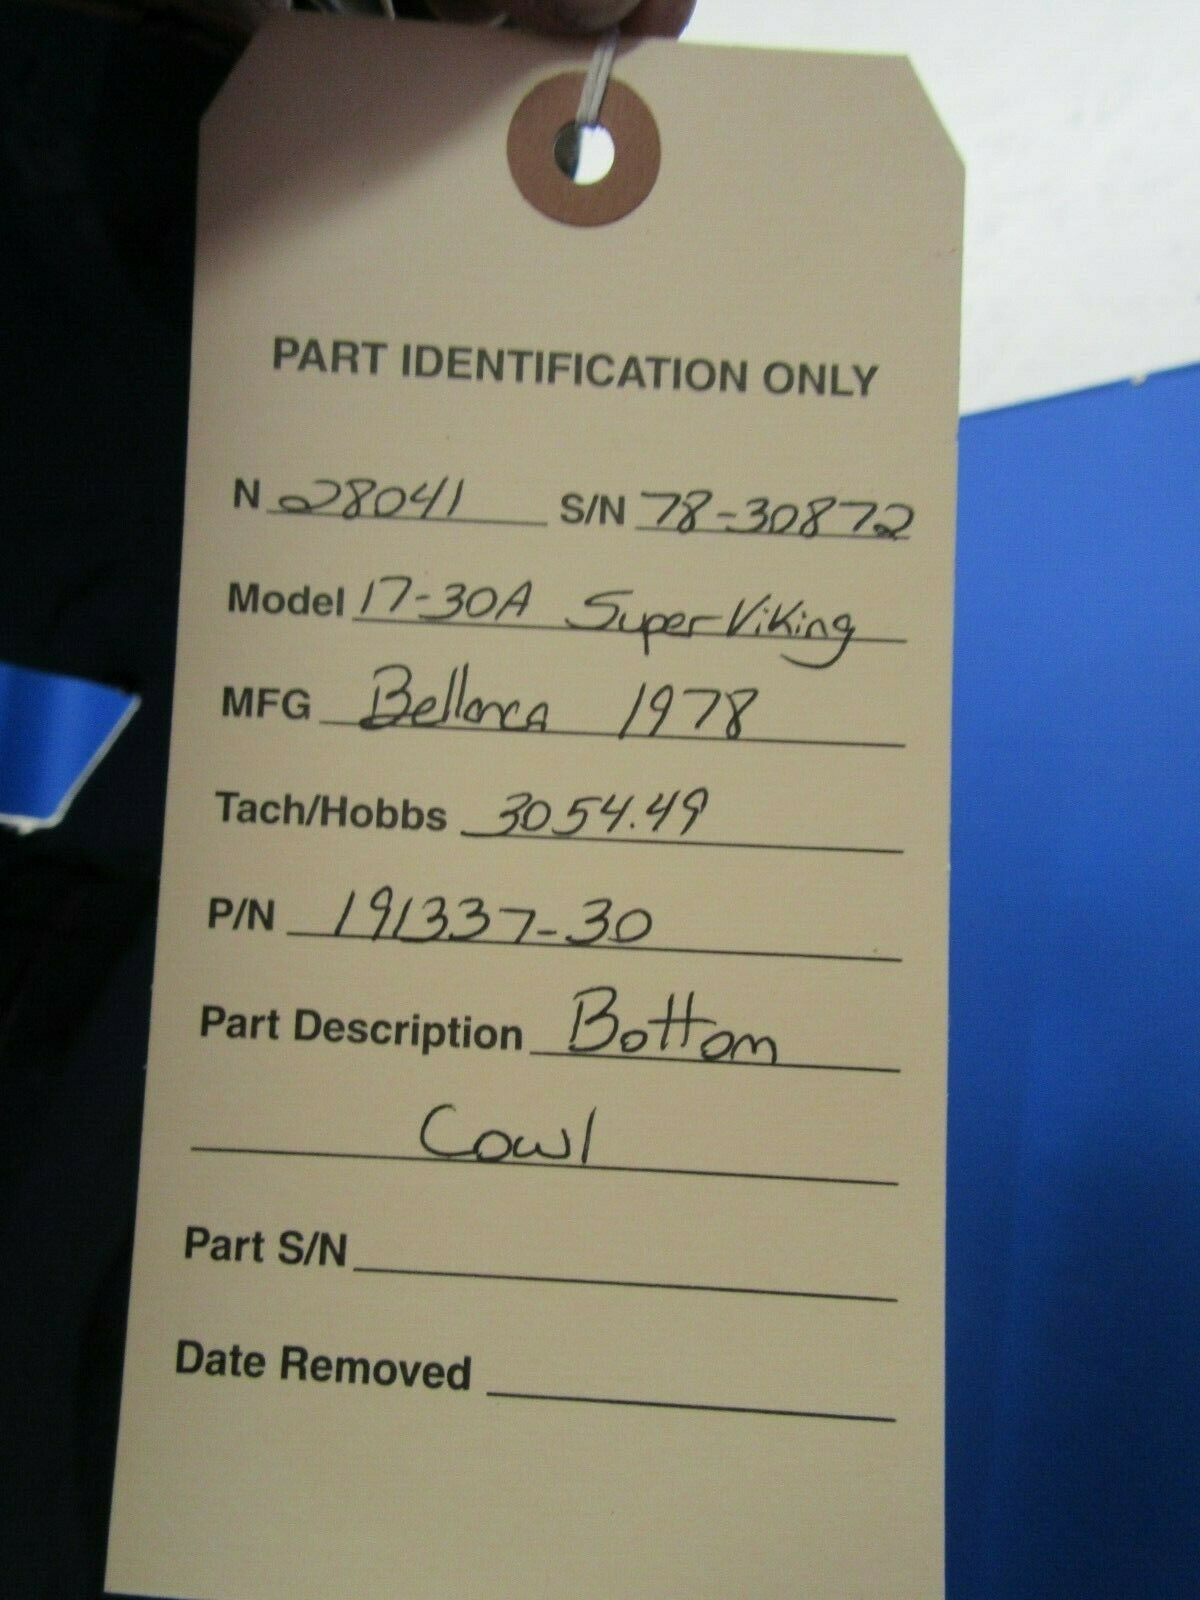 PART IDENTIFICATION ONLY
N 28041 S/N 78-30872
Model 17-30A Super Viking
MFG Bellanca 1978
Tach/Hobbs 3054.49
P/N 191337-30
Part Description Bottom
Cowl
Part S/N
Date Removed